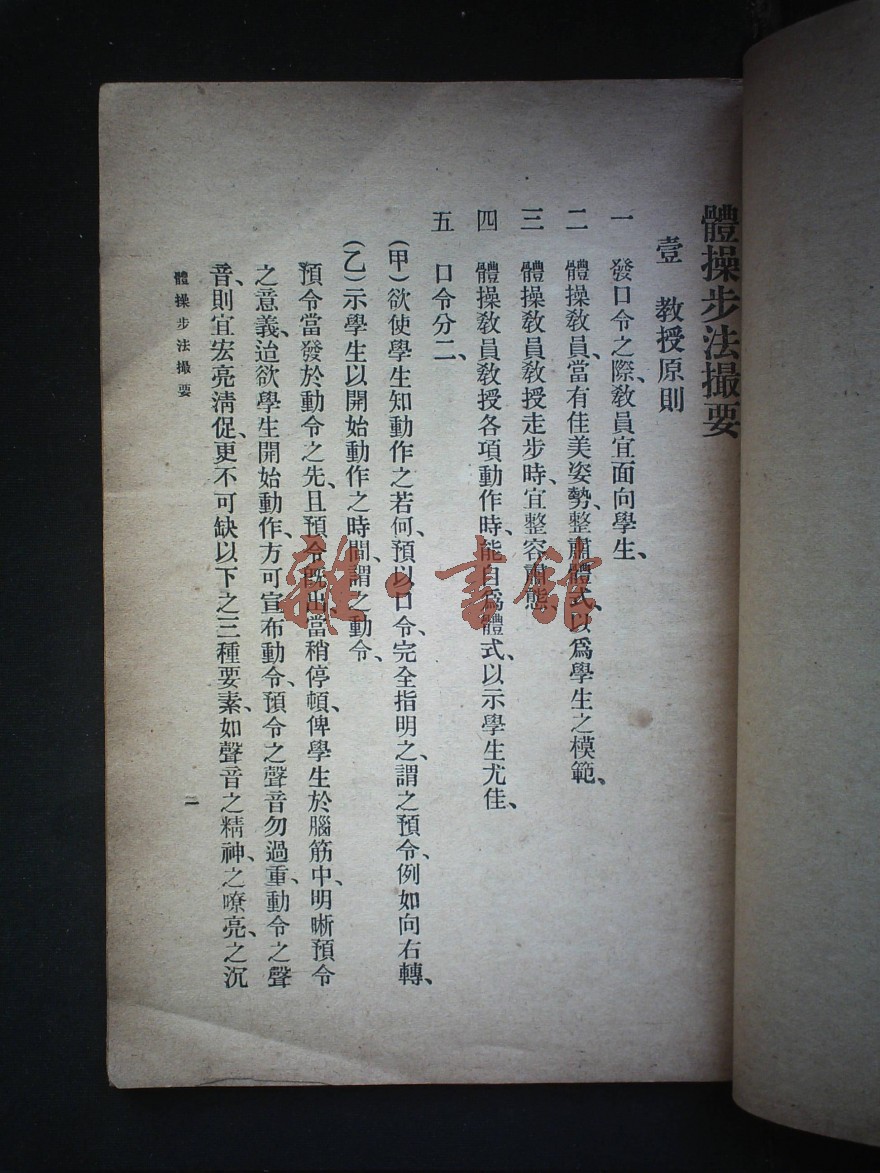 體操步法撮要
壹 教授原則
一 發口令之際、教員宜面向學生、
二 體操教員、當有佳美姿勢、整肅體式、以爲學生之模範、
三 體操教員教授走步時、宜整容肅態、
四 體操教員教授各項動作時、能自爲體式、以示學生尤佳、
五 口令分二、
(甲)欲使學生知動作之若何、預以口令、完全指明之、謂之預令、例如向右轉、
(乙)示學生以開始動作之時間、謂之動令、
預令當發於動令之先、且預令既出、當稍停頓、俾學生於腦筋中、明晰預令
之意義、迨欲學生開始動作、方可宣布動令、預令之聲音勿過重、動令之聲
音、則宜宏亮淸促、更不可缺以下之三種要素、如聲音之精神、之嘹亮、之沉
體操步法撮要
雜·書館